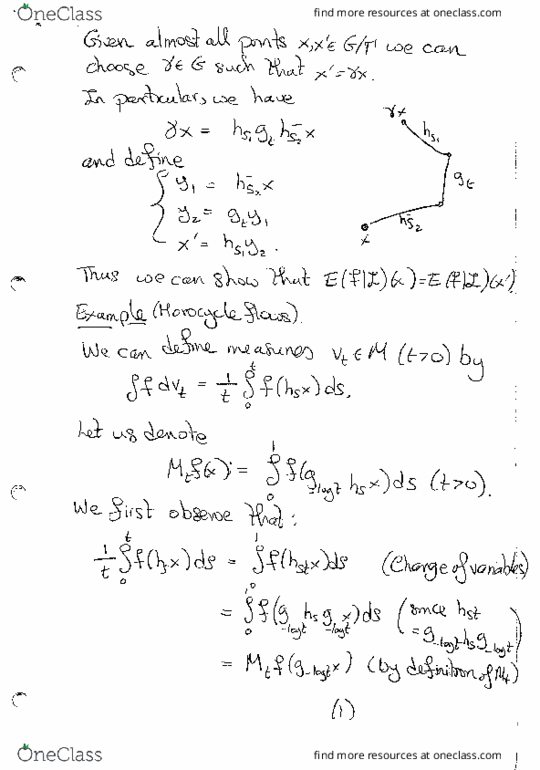 OneClass
find more resources at oneclass.com
Given almost all points x,x'∈ G/Γ we can
choose γ∈ G such that x'=γx.
In particular, we have
γx = h_{s_1} g_t h^-_{s_2} x
and define
{ y_1 = h^-_{s_2} x
y_2 = g_t y_1
x' = h_{s_1} y_2 .
γx
h_{s_1}
g_t
h^-_{s_2}
x
Thus we can show that E(f|I)(x)=E(f|I)(x')
Example (Horocycle flows).
We can define measures ν_t ∈ M (t>0) by
∫f dν_t = 1/t ∫_0^t f(h_s x) ds.
Let us denote
M_t f(x) := ∫_0^1 f(g_{-log t} h_s x) ds (t>0).
We first observe that:
1/t ∫_0^t f(h_s x) ds = ∫_0^1 f(h_{st} x) ds (Change of variables)
= ∫_0^1 f(g_{-log t} h_s g_{-log t} x) ds (since h_{st} = g_{-log t} h_s g_{-log t})
= M_t f(g_{-log t} x) (by definition of M_t)
(1)
OneClass
find more resources at oneclass.com